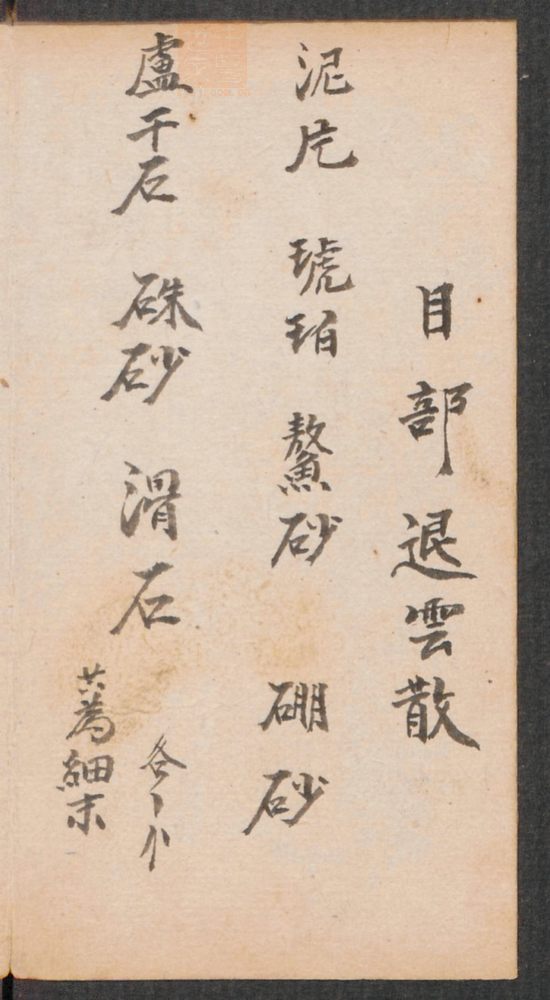 目部退雲散
泥片　琥珀　鰲砂　硼砂
盧干石　硃砂　滑石　各
共為細末